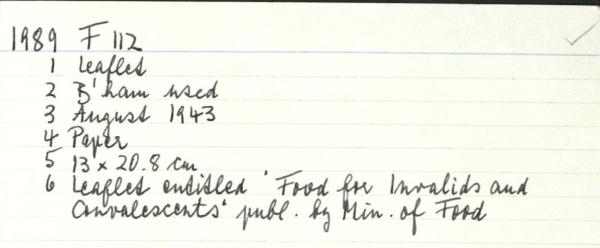 1989 F 112
1 Leaflet
2 B'ham used
3 August 1943
4 Paper
5 13 x 20.8 cm
6 Leaflet entitled 'Food for Invalids and
Convalescents' publ. by Min. of Food